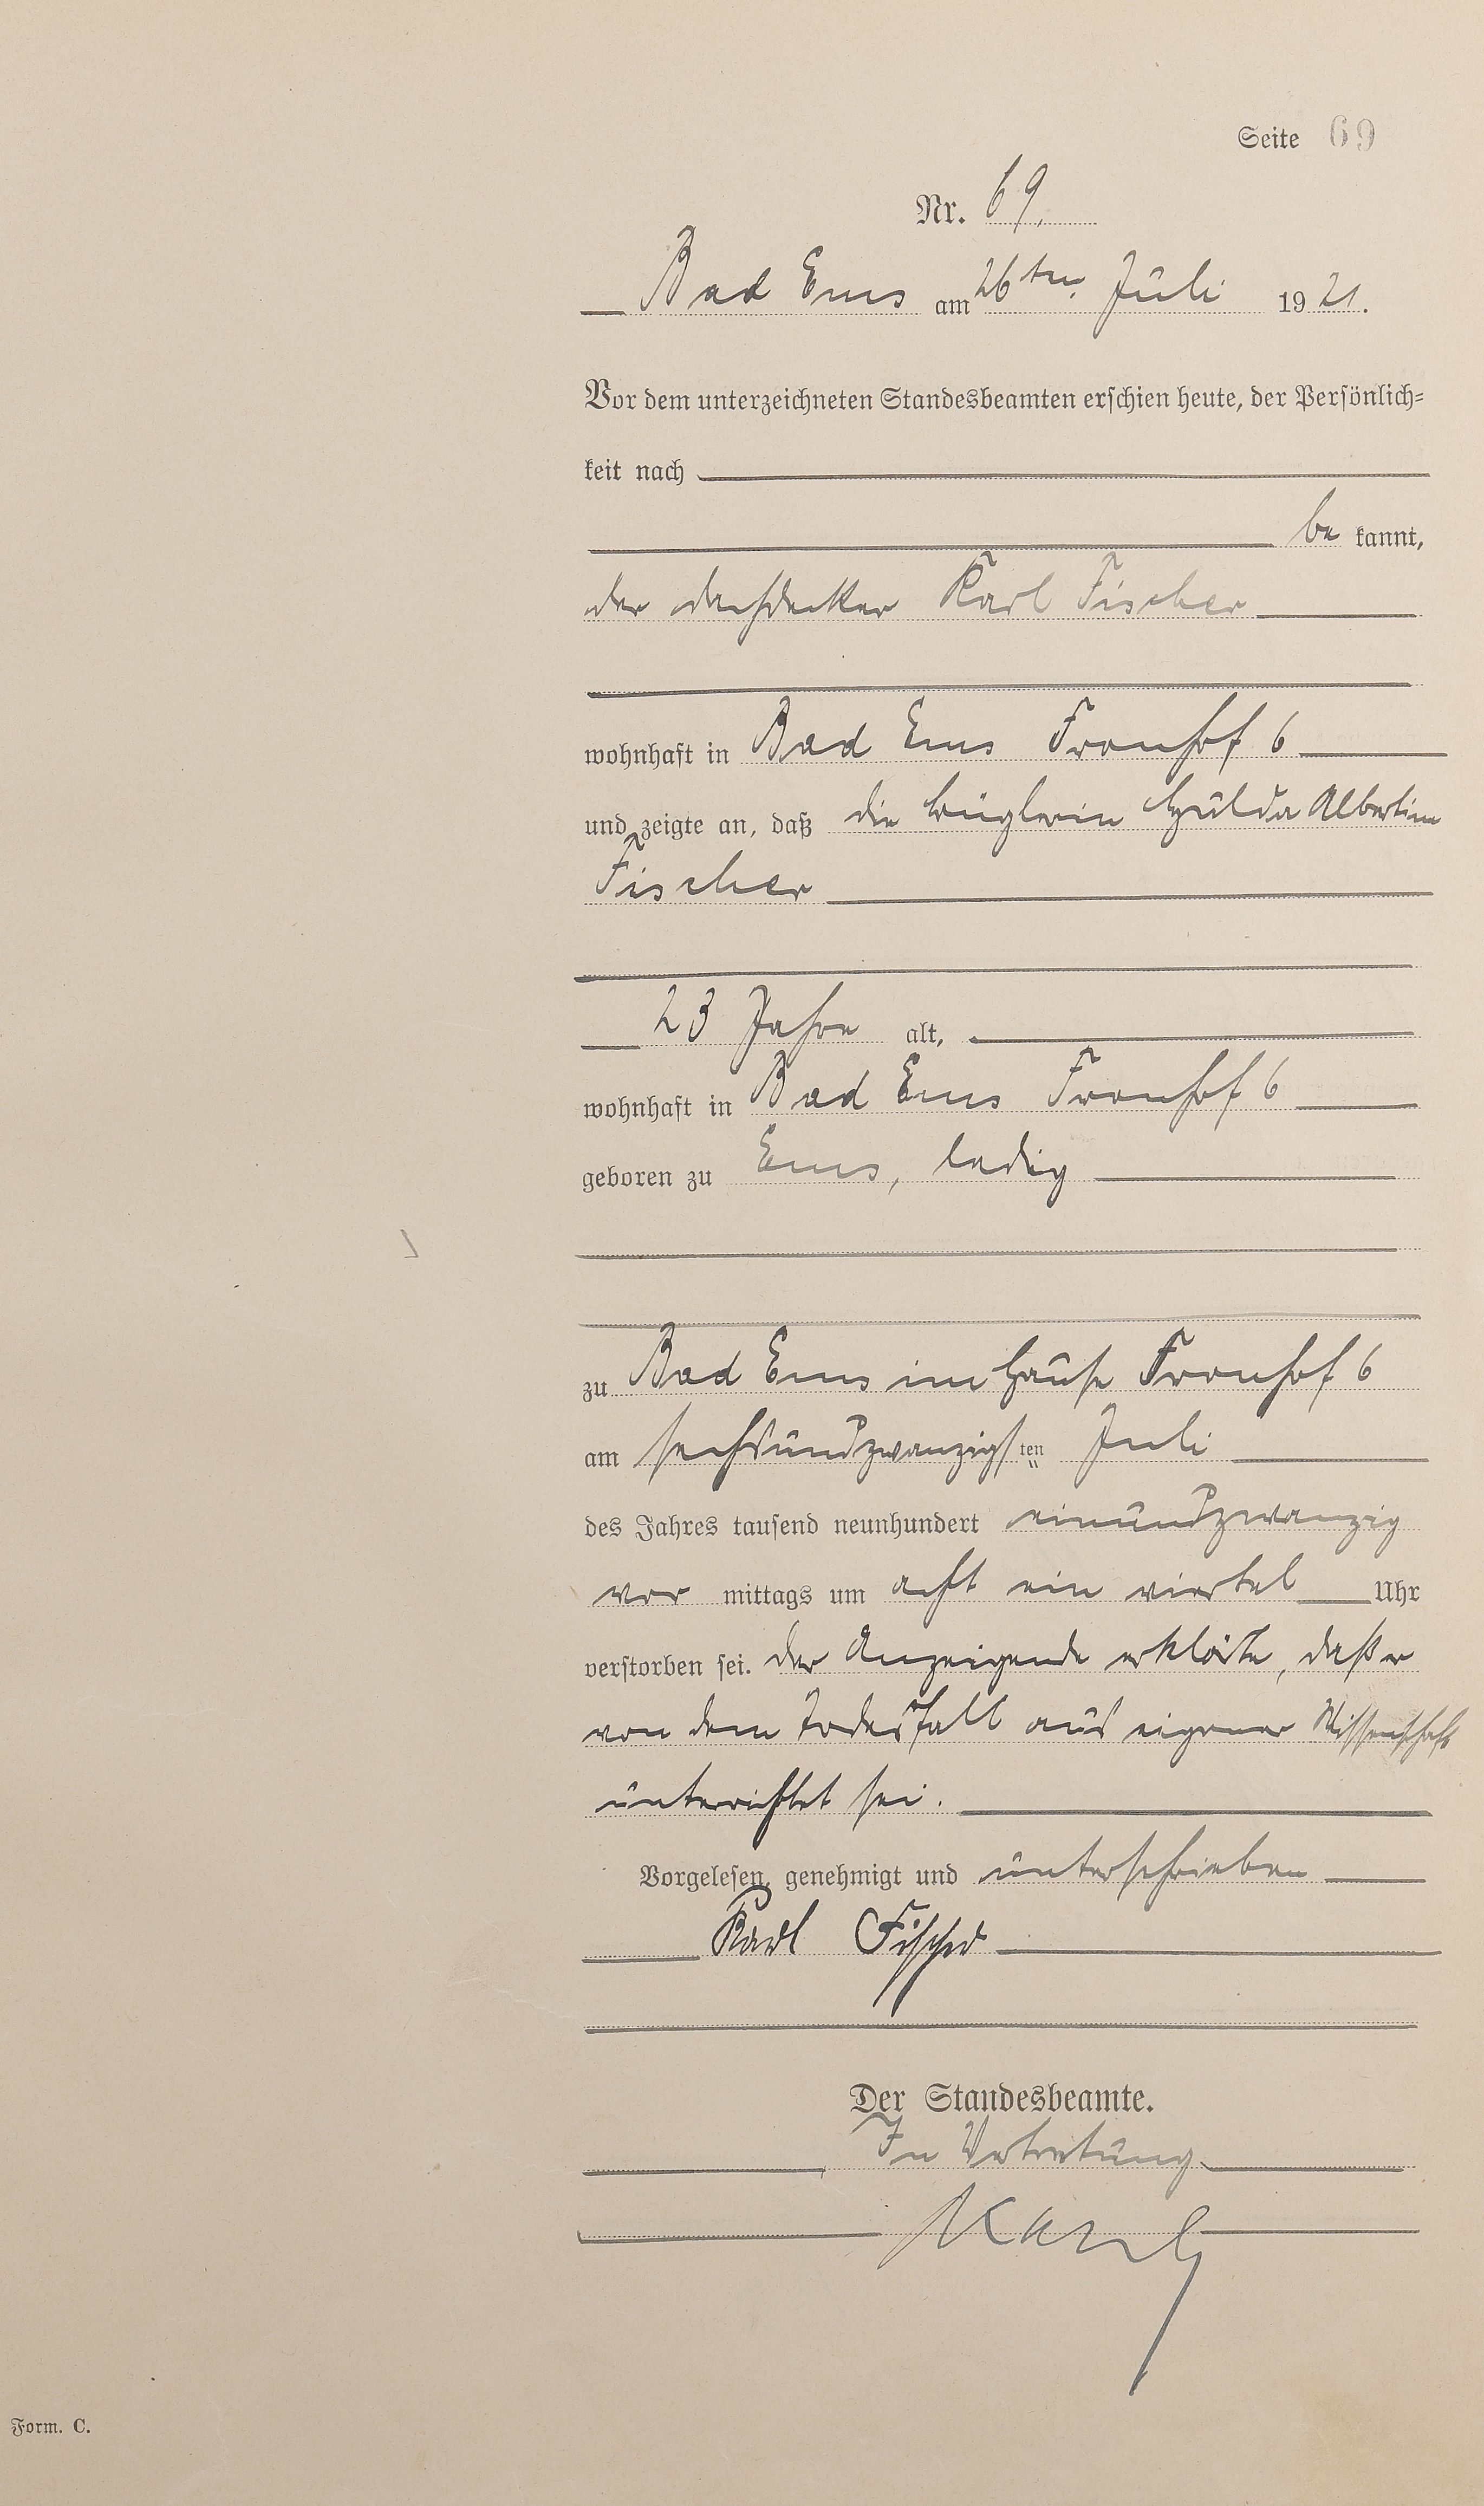 Seite 69
Nr. 69.
Bad Ems am 26ten Juli 1921.
Vor dem unterzeichneten Standesbeamten erschien heute, der Persönlich-
keit nach
be kannt,
der Dachdecker Karl Fischer
wohnhaft in Bad Ems Fronhof 6
und zeigte an, daß die Büglerin Hulda Albertine
Fischer
23 Jahre alt,
wohnhaft in Bad Ems Fronhof 6
geboren zu Ems, ledig
zu Bad Ems im Hause Fronhof 6
am sechsundzwanzigsten Juli
des Jahres tausend neunhundert einundzwanzig
vor mittags um acht ein viertel Uhr
verstorben sei. Der Anzeigende erklärte, daß er
von dem Todesfall aus eigener Wissenschaft
unterrichtet sei.
Vorgelesen, genehmigt und unterschrieben
Karl Fischer
Der Standesbeamte.
In Vertretung
Form. C.